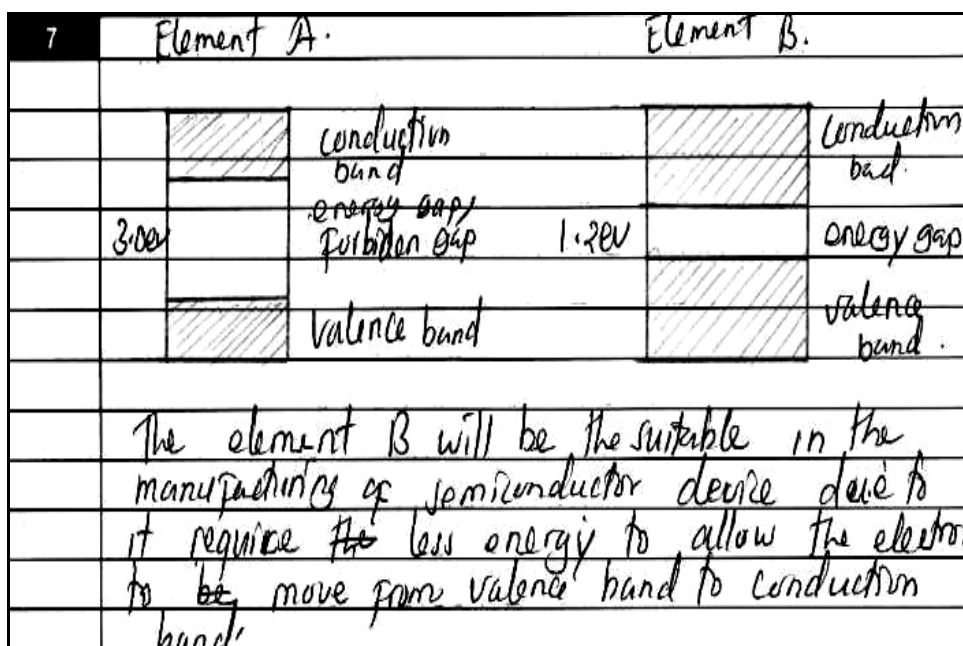 7 Element A. Element B.
conduction band conduction bad.
energy gap/ forbiden gap energy gap
3.0eV 1.2eV
valence band valence band.
The element B will be the suitable in the
manufacturing of semiconductor device due to
it require the less energy to allow the electron
to be move from valence band to conduction
band.